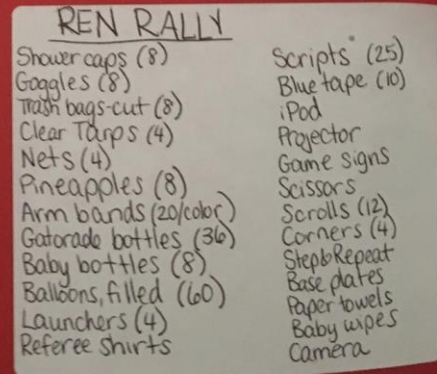 REN RALLY
Shower caps (8)
Goggles (8)
Trash bags-cut (8)
Clear Tarps (4)
Nets (4)
Pineapples (8)
Arm bands (20/color)
Gatorade bottles (36)
Baby bottles (8)
Balloons, filled (60)
Launchers (4)
Referee shirts
Scripts (25)
Blue tape (10)
iPod
Projector
Game signs
Scissors
Scrolls (12)
Corners (4)
Step&Repeat
Base plates
Paper towels
Baby wipes
Camera